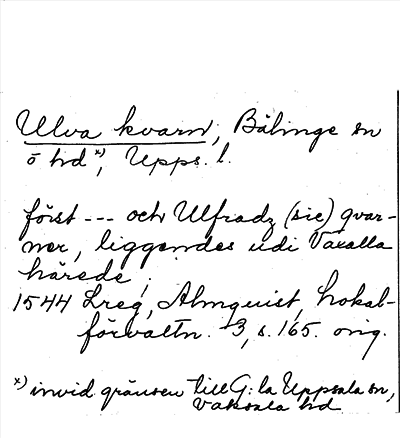 Ulva kvarn, Bälinge sn
o hd*), Upps. l.
först --- och Ulfradz (sic) qvar-
ner, liggendes udi Vaxalla
härede;
1544 Lreg, Almquist, Lokal-
förvaltn. 3, s. 165. orig.
*) invid gränsen till G:la Uppsala sn,
Vaksala hd